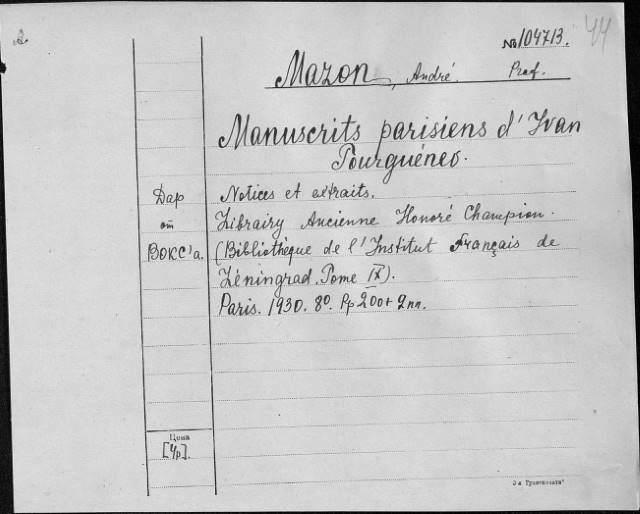 №104713. 44
Mazon, André. Prof.
Manuscrits parisiens d'Ivan
Tourguénev.
Дар
от
ВОКС'а.
Notices et extraits.
Librairy Ancienne Honoré Champion.
(Bibliothèque de l'Institut Français de
Léningrad. Tome IX).
Paris. 1930. 8º. Pp 200+2nn.
Цена
[4р].